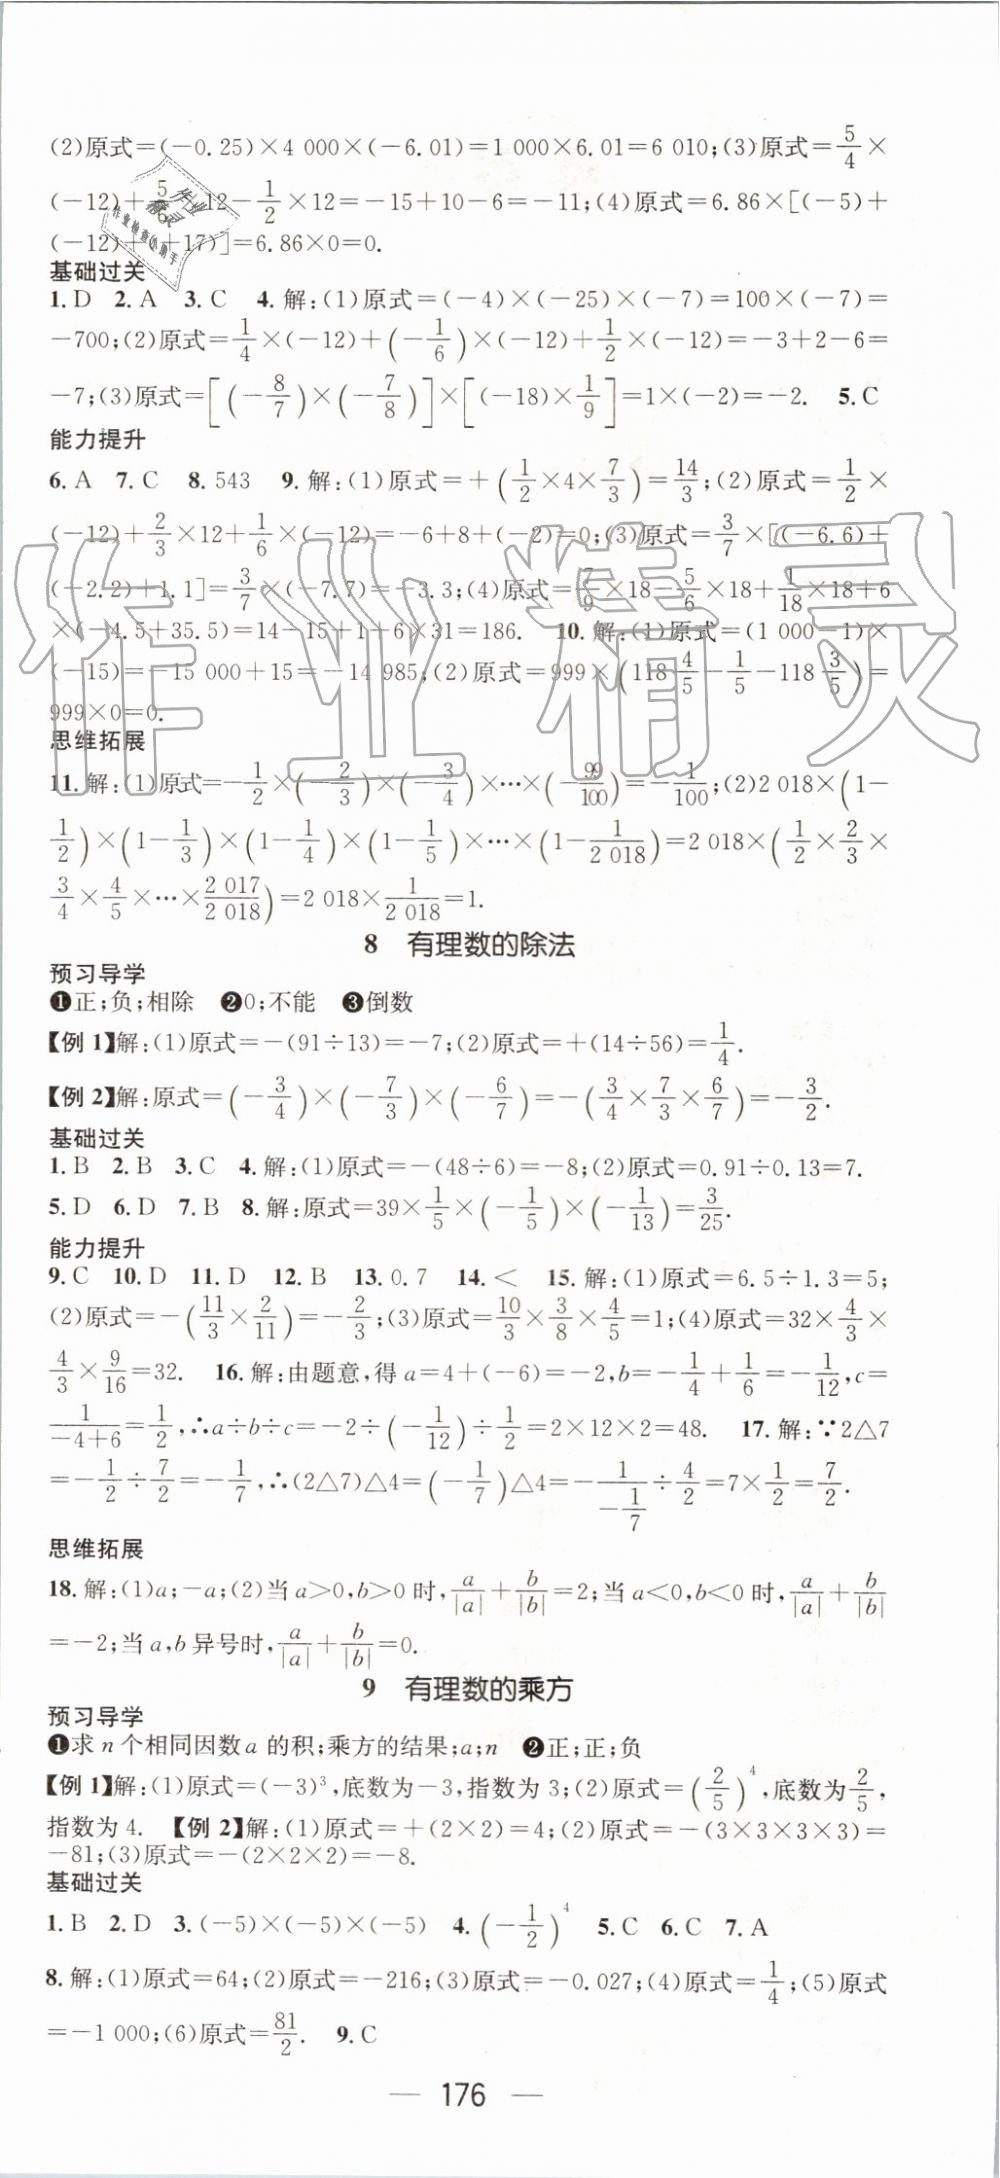 (2)原式=(-0.25)×4 000×(-6.01)=1 000×6.01=6 010;(3)原式=5/4×
(-12)+5/6 12-1/2×12=-15+10-6=-11;(4)原式=6.86×[(-5)+
(-12)+ +17)]=6.86×0=0.
基础过关
1. D 2. A 3. C 4. 解:(1)原式=(-4)×(-25)×(-7)=100×(-7)=
-700;(2)原式=1/4×(-12)+(-1/6)×(-12)+1/2×(-12)=-3+2-6=
-7;(3)原式=[(-8/7)×(-7/8)]×[(-18)×1/9]=1×(-2)=-2. 5. C
能力提升
6. A 7. C 8. 543 9. 解:(1)原式=+(1/2×4×7/3)=14/3;(2)原式=1/2×
(-12)+2/3×12+1/6×(-12)=-6+8+(-2)=0;(3)原式=3/7×[(-6.6)+
(-2.2)+1.1]=3/7×(-7.7)=-3.3;(4)原式=7/9×18-5/6×18+1/18×18+6
×(-4.5+35.5)=14-15+1+6×31=186. 10. 解:(1)原式=(1 000-1)×
(-15)=-15 000+15=-14 985;(2)原式=999×(118 4/5-1/5-118 3/5)=
999×0=0.
思维拓展
11. 解:(1)原式=-1/2×(-2/3)×(-3/4)×…×(-99/100)=-1/100;(2)2 018×(1-
1/2)×(1-1/3)×(1-1/4)×(1-1/5)×…×(1-1/2 018)=2 018×(1/2×2/3×
3/4×4/5×…×2 017/2 018)=2 018×1/2 018=1.
8 有理数的除法
预习导学
❶正;负;相除 ❷0;不能 ❸倒数
【例1】解:(1)原式=-(91÷13)=-7;(2)原式=+(14÷56)=1/4.
【例2】解:原式=(-3/4)×(-7/3)×(-6/7)=-(3/4×7/3×6/7)=-3/2.
基础过关
1. B 2. B 3. C 4. 解:(1)原式=-(48÷6)=-8;(2)原式=0.91÷0.13=7.
5. D 6. D 7. B 8. 解:原式=39×1/5×(-1/5)×(-1/13)=3/25.
能力提升
9. C 10. D 11. D 12. B 13. 0.7 14. < 15. 解:(1)原式=6.5÷1.3=5;
(2)原式=-(11/3×2/11)=-2/3;(3)原式=10/3×3/8×4/5=1;(4)原式=32×4/3×
4/3×9/16=32. 16. 解:由题意,得 a=4+(-6)=-2,b=-1/4+1/6=-1/12,c=
1/(-4+6)=1/2,∴a÷b÷c=-2÷(-1/12)÷1/2=2×12×2=48. 17. 解:∵2△7
=-1/2÷7/2=-1/7,∴(2△7)△4=(-1/7)△4=-1/(-1/7)÷4/2=7×1/2=7/2.
思维拓展
18. 解:(1)a;-a;(2)当 a>0,b>0 时,a/|a|+b/|b|=2;当 a<0,b<0 时,a/|a|+b/|b|
=-2;当 a,b 异号时,a/|a|+b/|b|=0.
9 有理数的乘方
预习导学
❶求 n 个相同因数 a 的积;乘方的结果;a;n ❷正;正;负
【例1】解:(1)原式=(-3)³,底数为-3,指数为 3;(2)原式=(2/5)⁴,底数为2/5,
指数为 4. 【例2】解:(1)原式=+(2×2)=4;(2)原式=-(3×3×3×3)=
-81;(3)原式=-(2×2×2)=-8.
基础过关
1. B 2. D 3. (-5)×(-5)×(-5) 4. (-1/2)⁴ 5. C 6. C 7. A
8. 解:(1)原式=64;(2)原式=-216;(3)原式=-0.027;(4)原式=1/4;(5)原式
=-1 000;(6)原式=81/2. 9. C
— 176 —
作业精灵
作业精灵
作业检查小助手